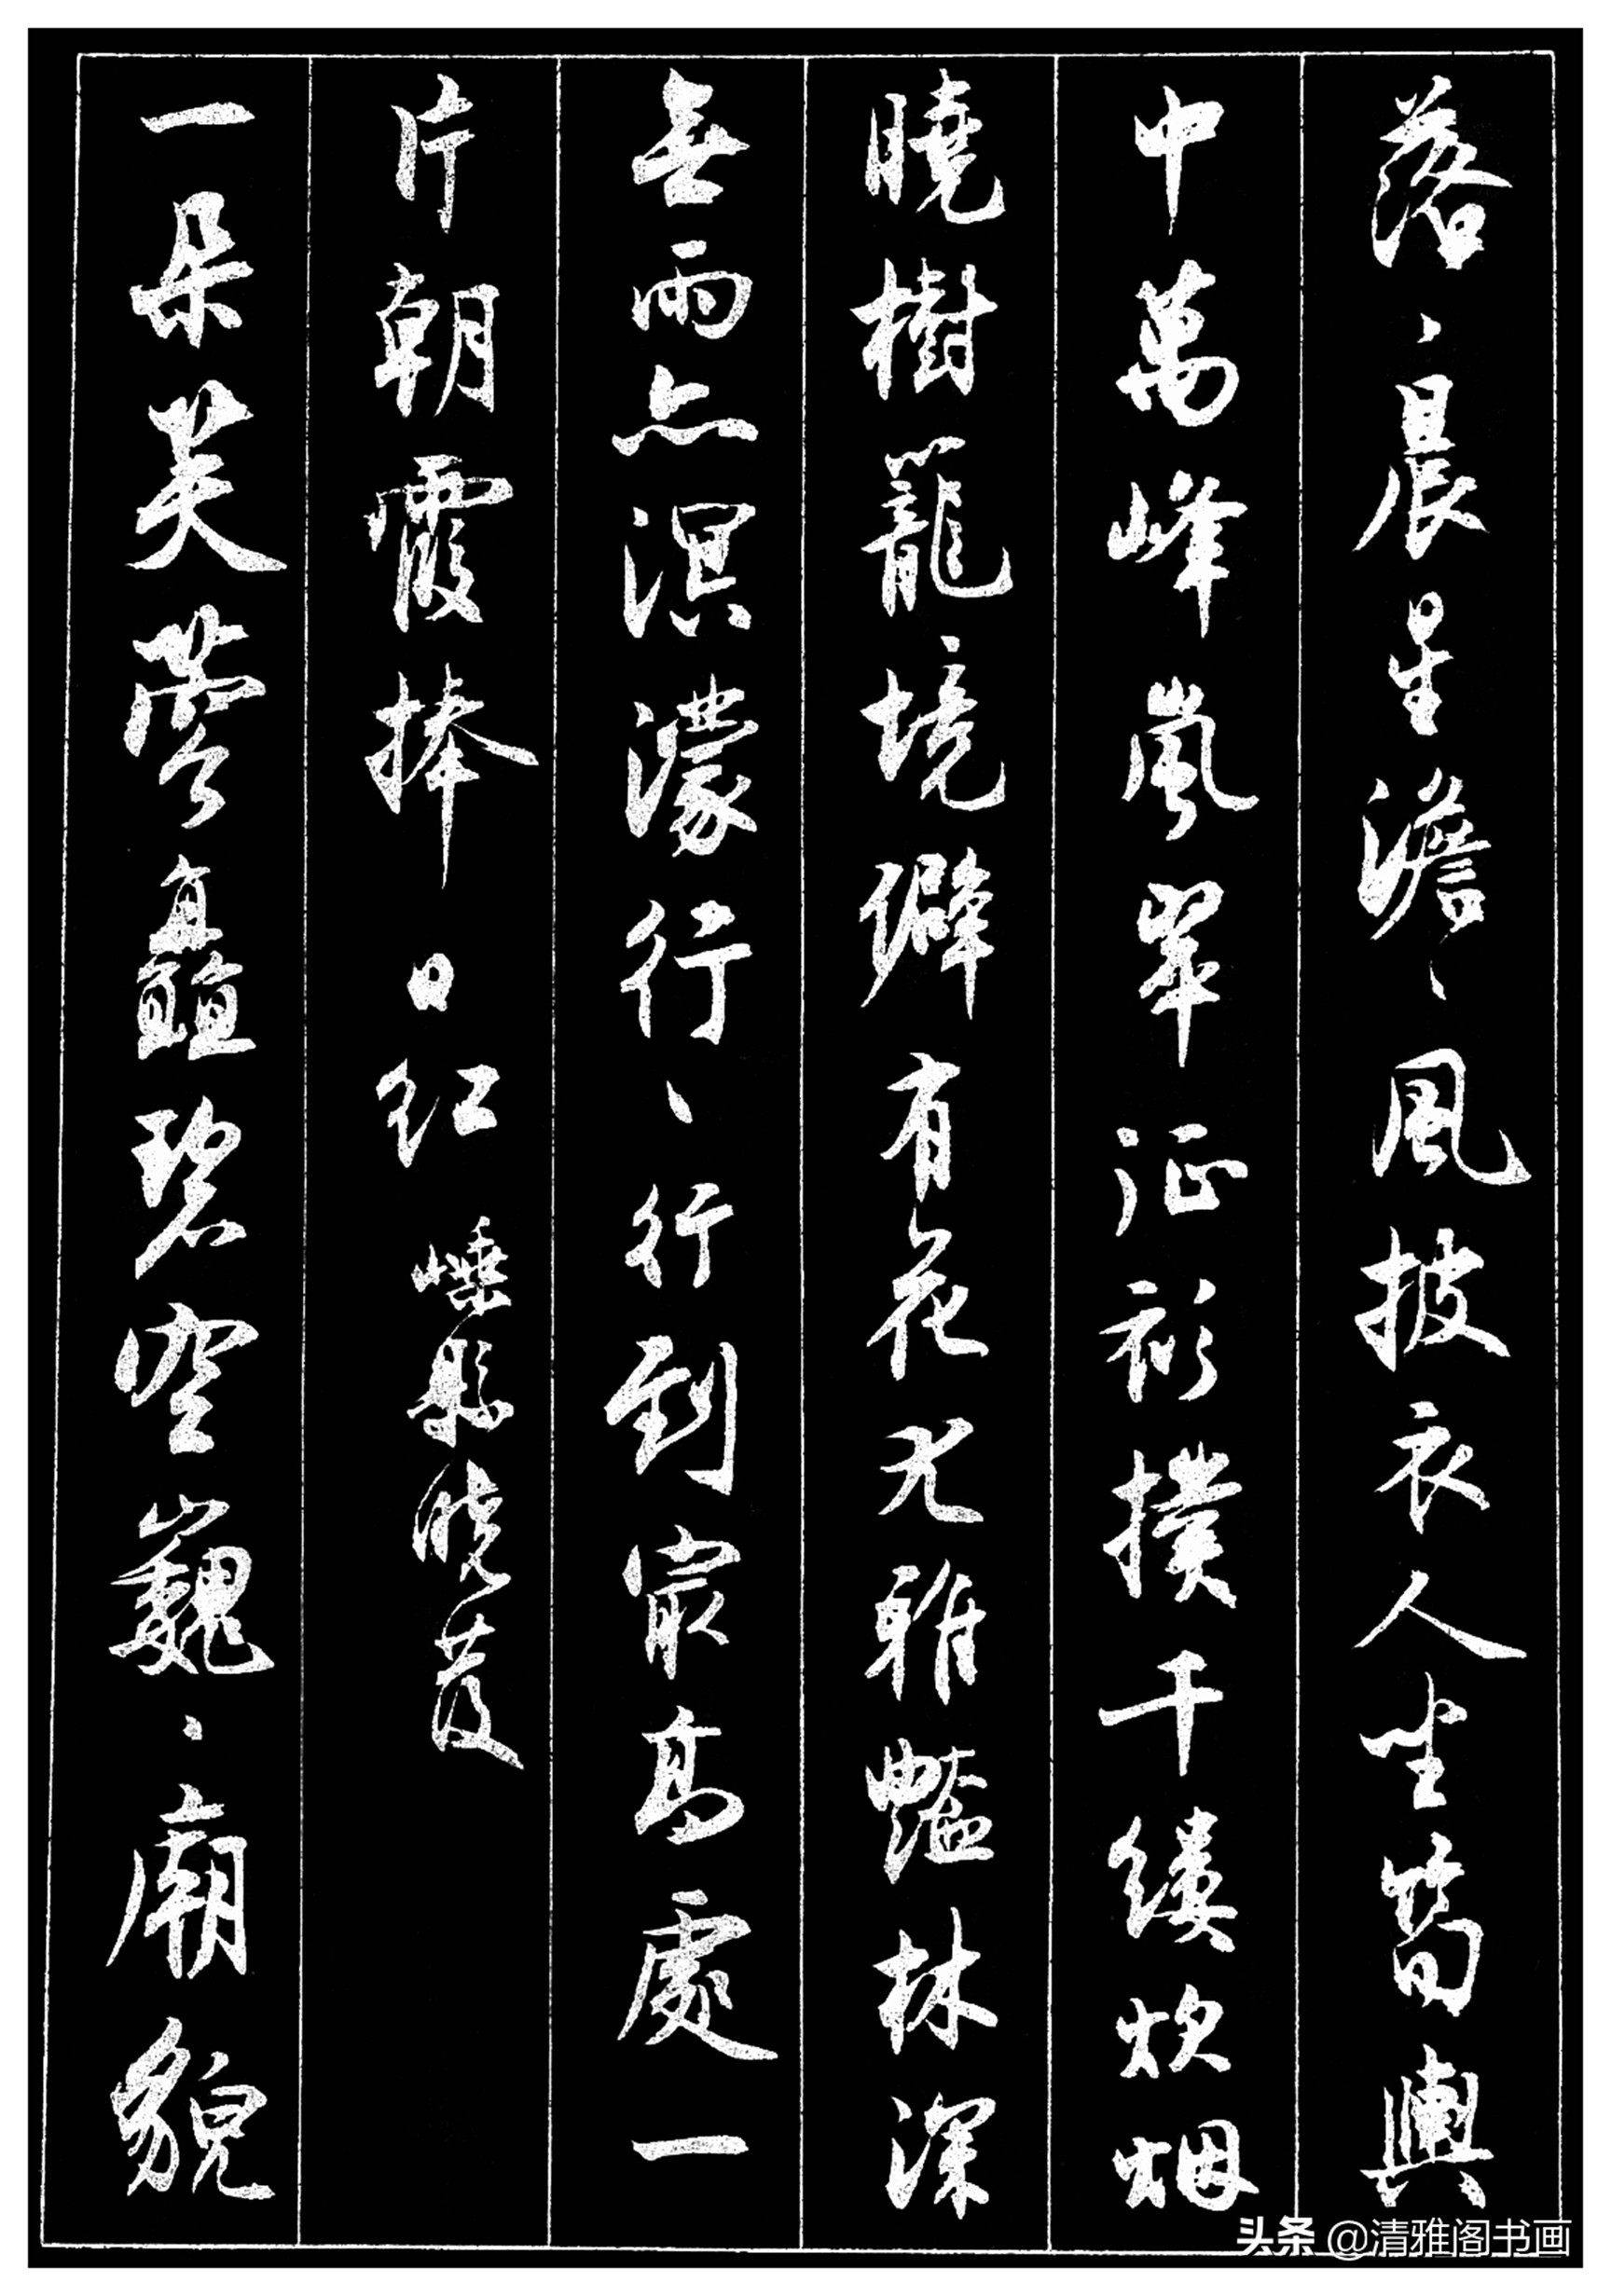 落、晨星澹、風披衣人坐筍輿
中萬峰嵐翠征衫撲千縷炊烟
曉樹籠境僻有花尤雅豔林深
無雨亦溟濛行、行到最高處一
片朝霞捧日紅 嵊縣曉發
一朵芙蓉矗碧空巍、廟貌
头条 @清雅阁书画